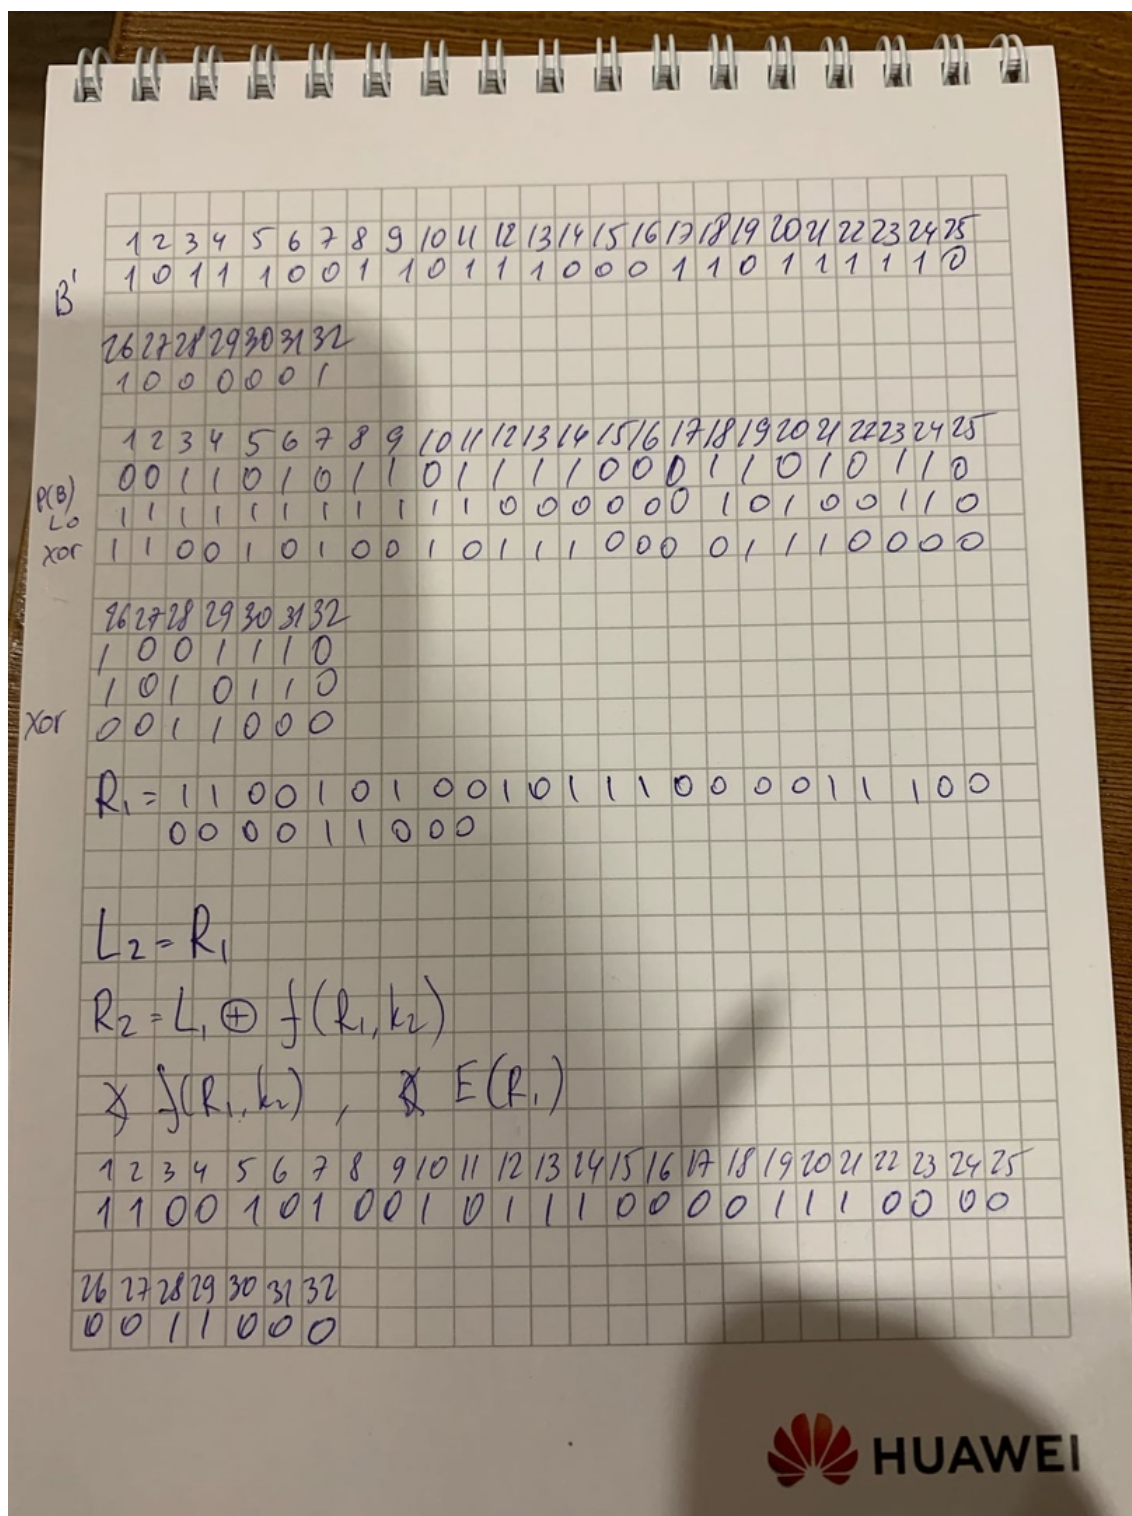 1 2 3 4 5 6 7 8 9 10 11 12 13 14 15 16 17 18 19 20 21 22 23 24 25
B' 1 0 1 1 1 0 0 1 1 0 1 1 1 0 0 0 1 1 0 1 1 1 1 1 0
26 27 28 29 30 31 32
1 0 0 0 0 0 1
1 2 3 4 5 6 7 8 9 10 11 12 13 14 15 16 17 18 19 20 21 22 23 24 25
P(B) 0 0 1 1 0 1 0 1 1 0 1 1 1 1 0 0 0 1 1 0 1 0 1 1 0
L0 1 1 1 1 1 1 1 1 1 1 1 0 0 0 0 0 0 1 0 1 0 0 1 1 0
xor 1 1 0 0 1 0 1 0 0 1 0 1 1 1 0 0 0 0 1 1 1 0 0 0 0
26 27 28 29 30 31 32
1 0 0 1 1 1 0
1 0 1 0 1 1 0
xor 0 0 1 1 0 0 0
R1 = 1 1 0 0 1 0 1 0 0 1 0 1 1 1 0 0 0 0 1 1 1 0 0
0 0 0 0 1 1 0 0 0
L2 = R1
R2 = L1 ⊕ f(R1, k2)
f(R1, k2) , E(R1)
1 2 3 4 5 6 7 8 9 10 11 12 13 14 15 16 17 18 19 20 21 22 23 24 25
1 1 0 0 1 0 1 0 0 1 0 1 1 1 0 0 0 0 1 1 1 0 0 0 0
26 27 28 29 30 31 32
0 0 1 1 0 0 0
HUAWEI